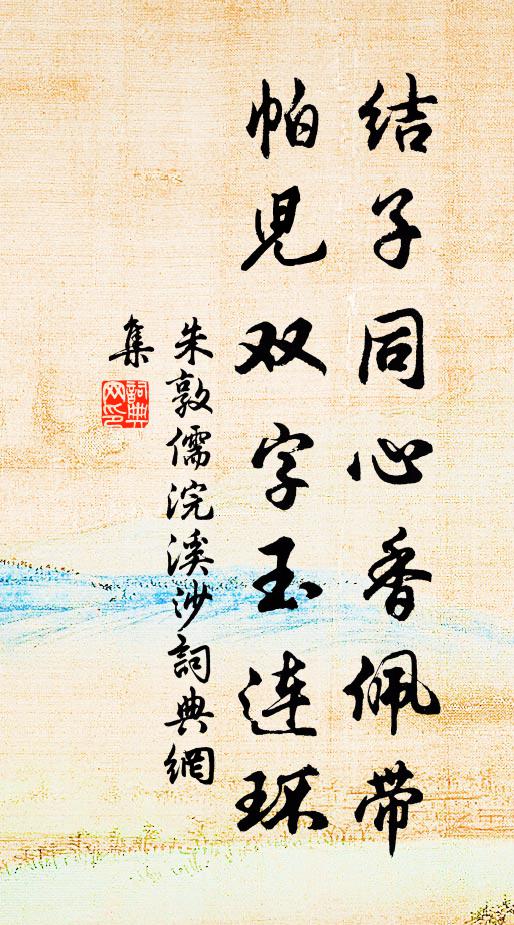 结子同心香佩带
帕儿双字玉连环
朱敦儒浣溪沙詞典網
集
詞典
网印